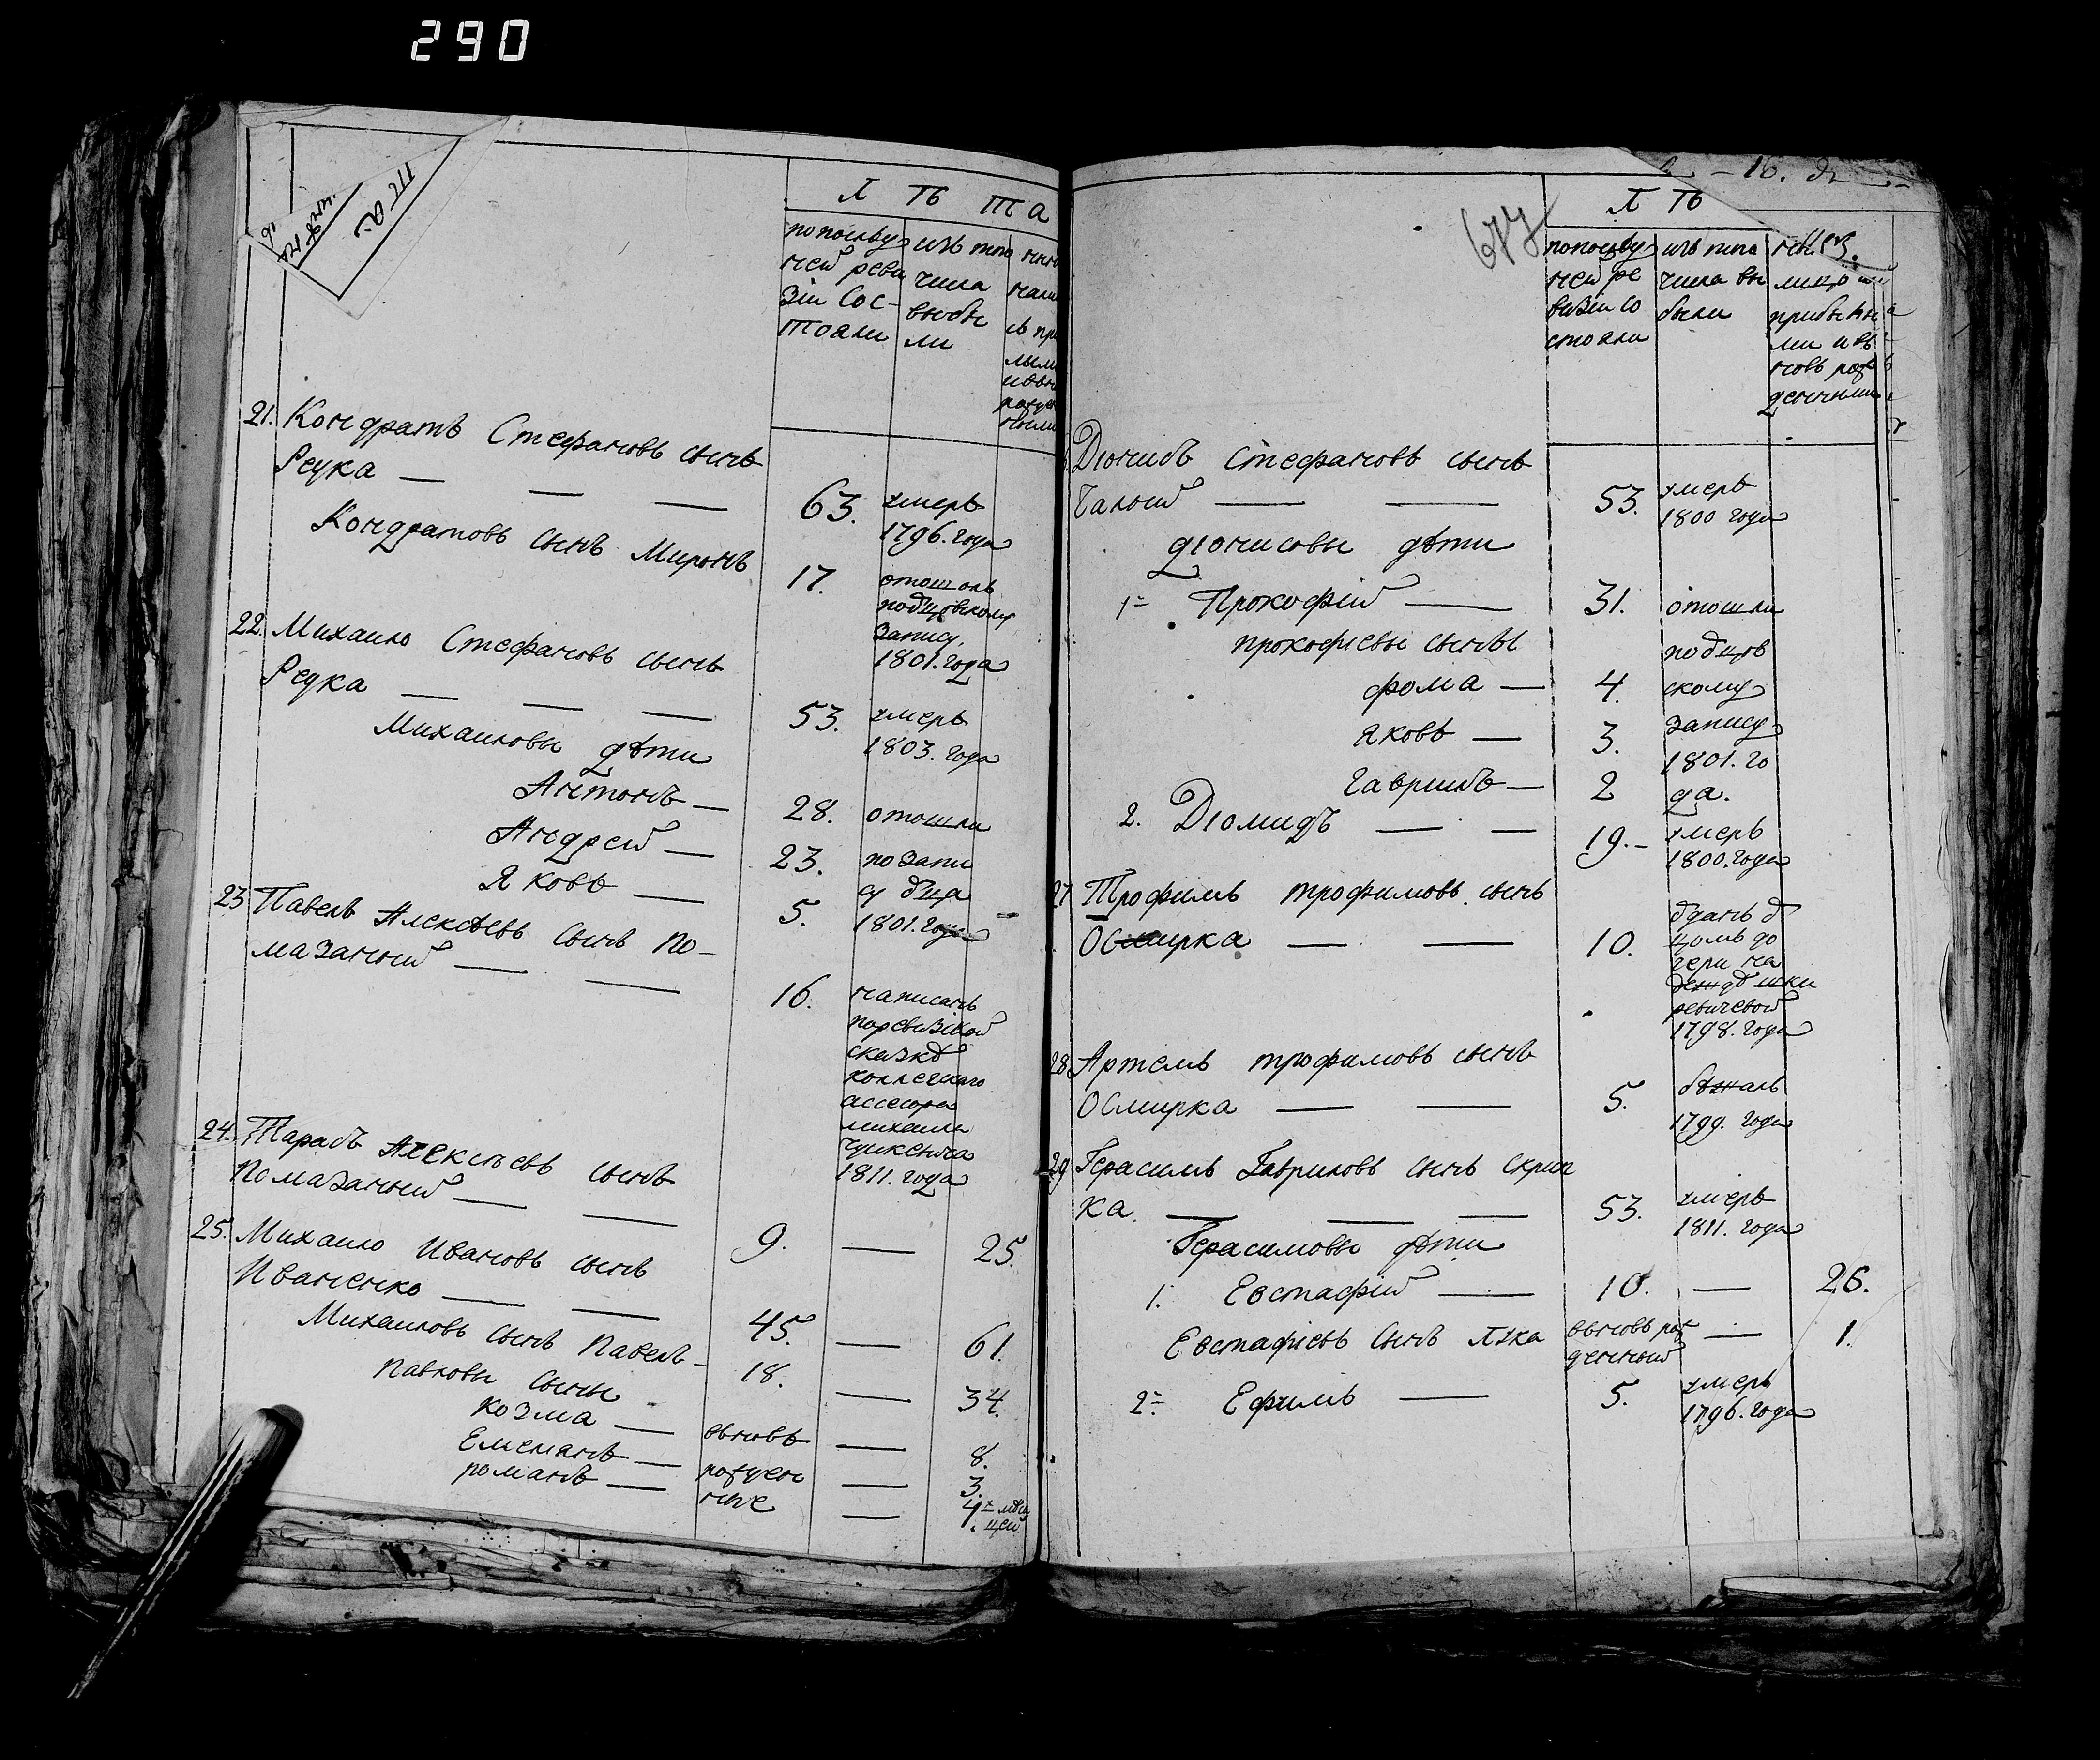 290
Л Ѣ Т А
по послѣд
ней реви
зіи сос-
тояли
изъ того
числа
выбы
ли
21. Кондратъ Стефановъ сынъ
Редка — — — 63. умеръ
1796. года
Кондратовъ сынъ Миронъ 17. отошолъ
запису
1801. года
22. Михаило Стефановъ сынъ
Редка — — — 53. умеръ
1803. года
Михаиловы дѣти
Антонъ — 28. отошли
Андрей — 23. по запи
Яковъ — 5. су отца
1801. года
23 Павелъ Алексѣевъ сынъ По-
мазаный — — 16. написанъ
по ревизской
сказкѣ
колежскаго
асессора
михаила
1811. года
24. Тарасъ Алексѣевъ сынъ
Помазаный — — 9. — 25.
25. Михаило Ивановъ сынъ
Иваненко — — 45. — 61.
Михаиловъ сынъ Павелъ — 18. — 34.
Павловы сыны
Козма — вновь — 8.
Емеманъ — рожден — 3.
романъ — ные — 4х мѣся
цей
677
Л Ѣ
по послѣд
ней ре
визіи со
стояли
изъ того
числа вы
были
лицо
прибылы
ми и в
новь рож
денными
Діонисъ Стефановъ сынъ
Чалый — — 53. умеръ
1800 года
діонисовы дѣти
1е Прокофій — 31. отошли
прокофіевы сыны
фома — 4. скому
яковъ — 3. запису
1801. го
гаврилъ — 2 да.
2. Діомидъ — — 19. – умеръ
1800. года
27 Трофимъ трофимовъ сынъ
Осмирка — — 10. отданъ о
цомъ до
чери на
1798. года
28 Артемъ трофимовъ сынъ
Осмирка — — 5. бѣжалъ
1799. года
29 Герасимъ Гавриловъ сынъ Скрип
ка — — — 53. умеръ
1811. года
Герасимовы дѣти
1. Евстафій — 10. — 26.
Евстафіевъ сынъ Лука вновь рож
денный — 1.
2е Ефимъ — 5. умеръ
1796. года